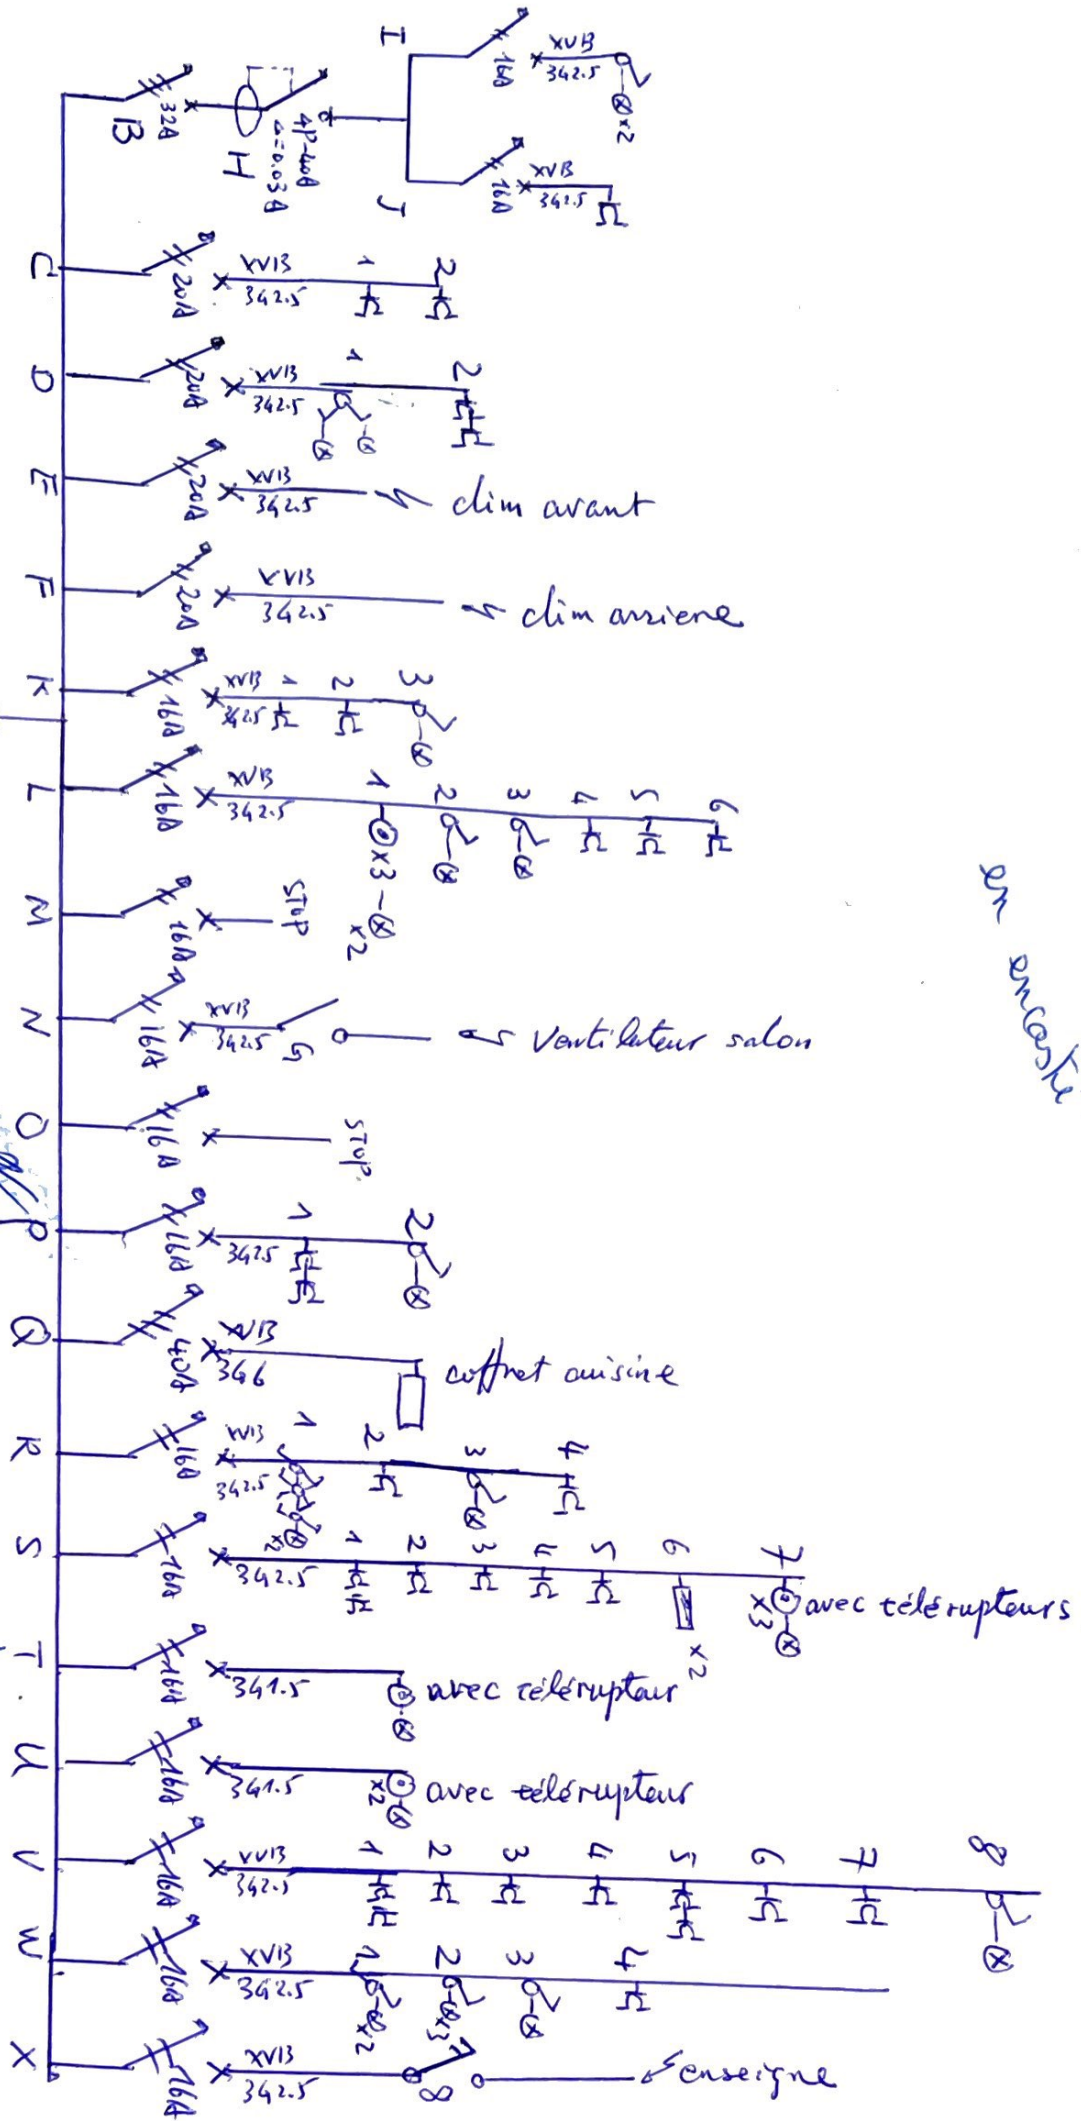 I
16A
XVB
342.5
x2
J
16A
XVB
342.5
B
32A
H
4P-40A
Δ=0.03A
C
20A
XVB
342.5
1
2
D
20A
XVB
342.5
1
2
E
20A
XVB
342.5
clim avant
F
20A
XVB
342.5
clim arriere
K
16A
XVB
342.5
1
2
3
L
16A
XVB
342.5
1
2
3
4
5
6
x3
x2
M
16A
STOP
en encastré
N
16A
XVB
342.5
5
Ventilateur salon
O
16A
STOP.
P
16A
3G2.5
1
2
Q
40A
XVB
3G6
coffret cuisine
R
16A
XVB
342.5
1
2
3
4
x2
S
16A
342.5
1
2
3
4
5
6
7
x2
x3
avec télérupteurs
T
16A
3G1.5
avec télérupteur
U
16A
3G1.5
x2
avec télérupteur
V
16A
VVB
342.5
1
2
3
4
5
6
7
8
W
16A
XVB
342.5
1
2
3
4
x2
x3
X
16A
XVB
342.5
8
7
enseigne